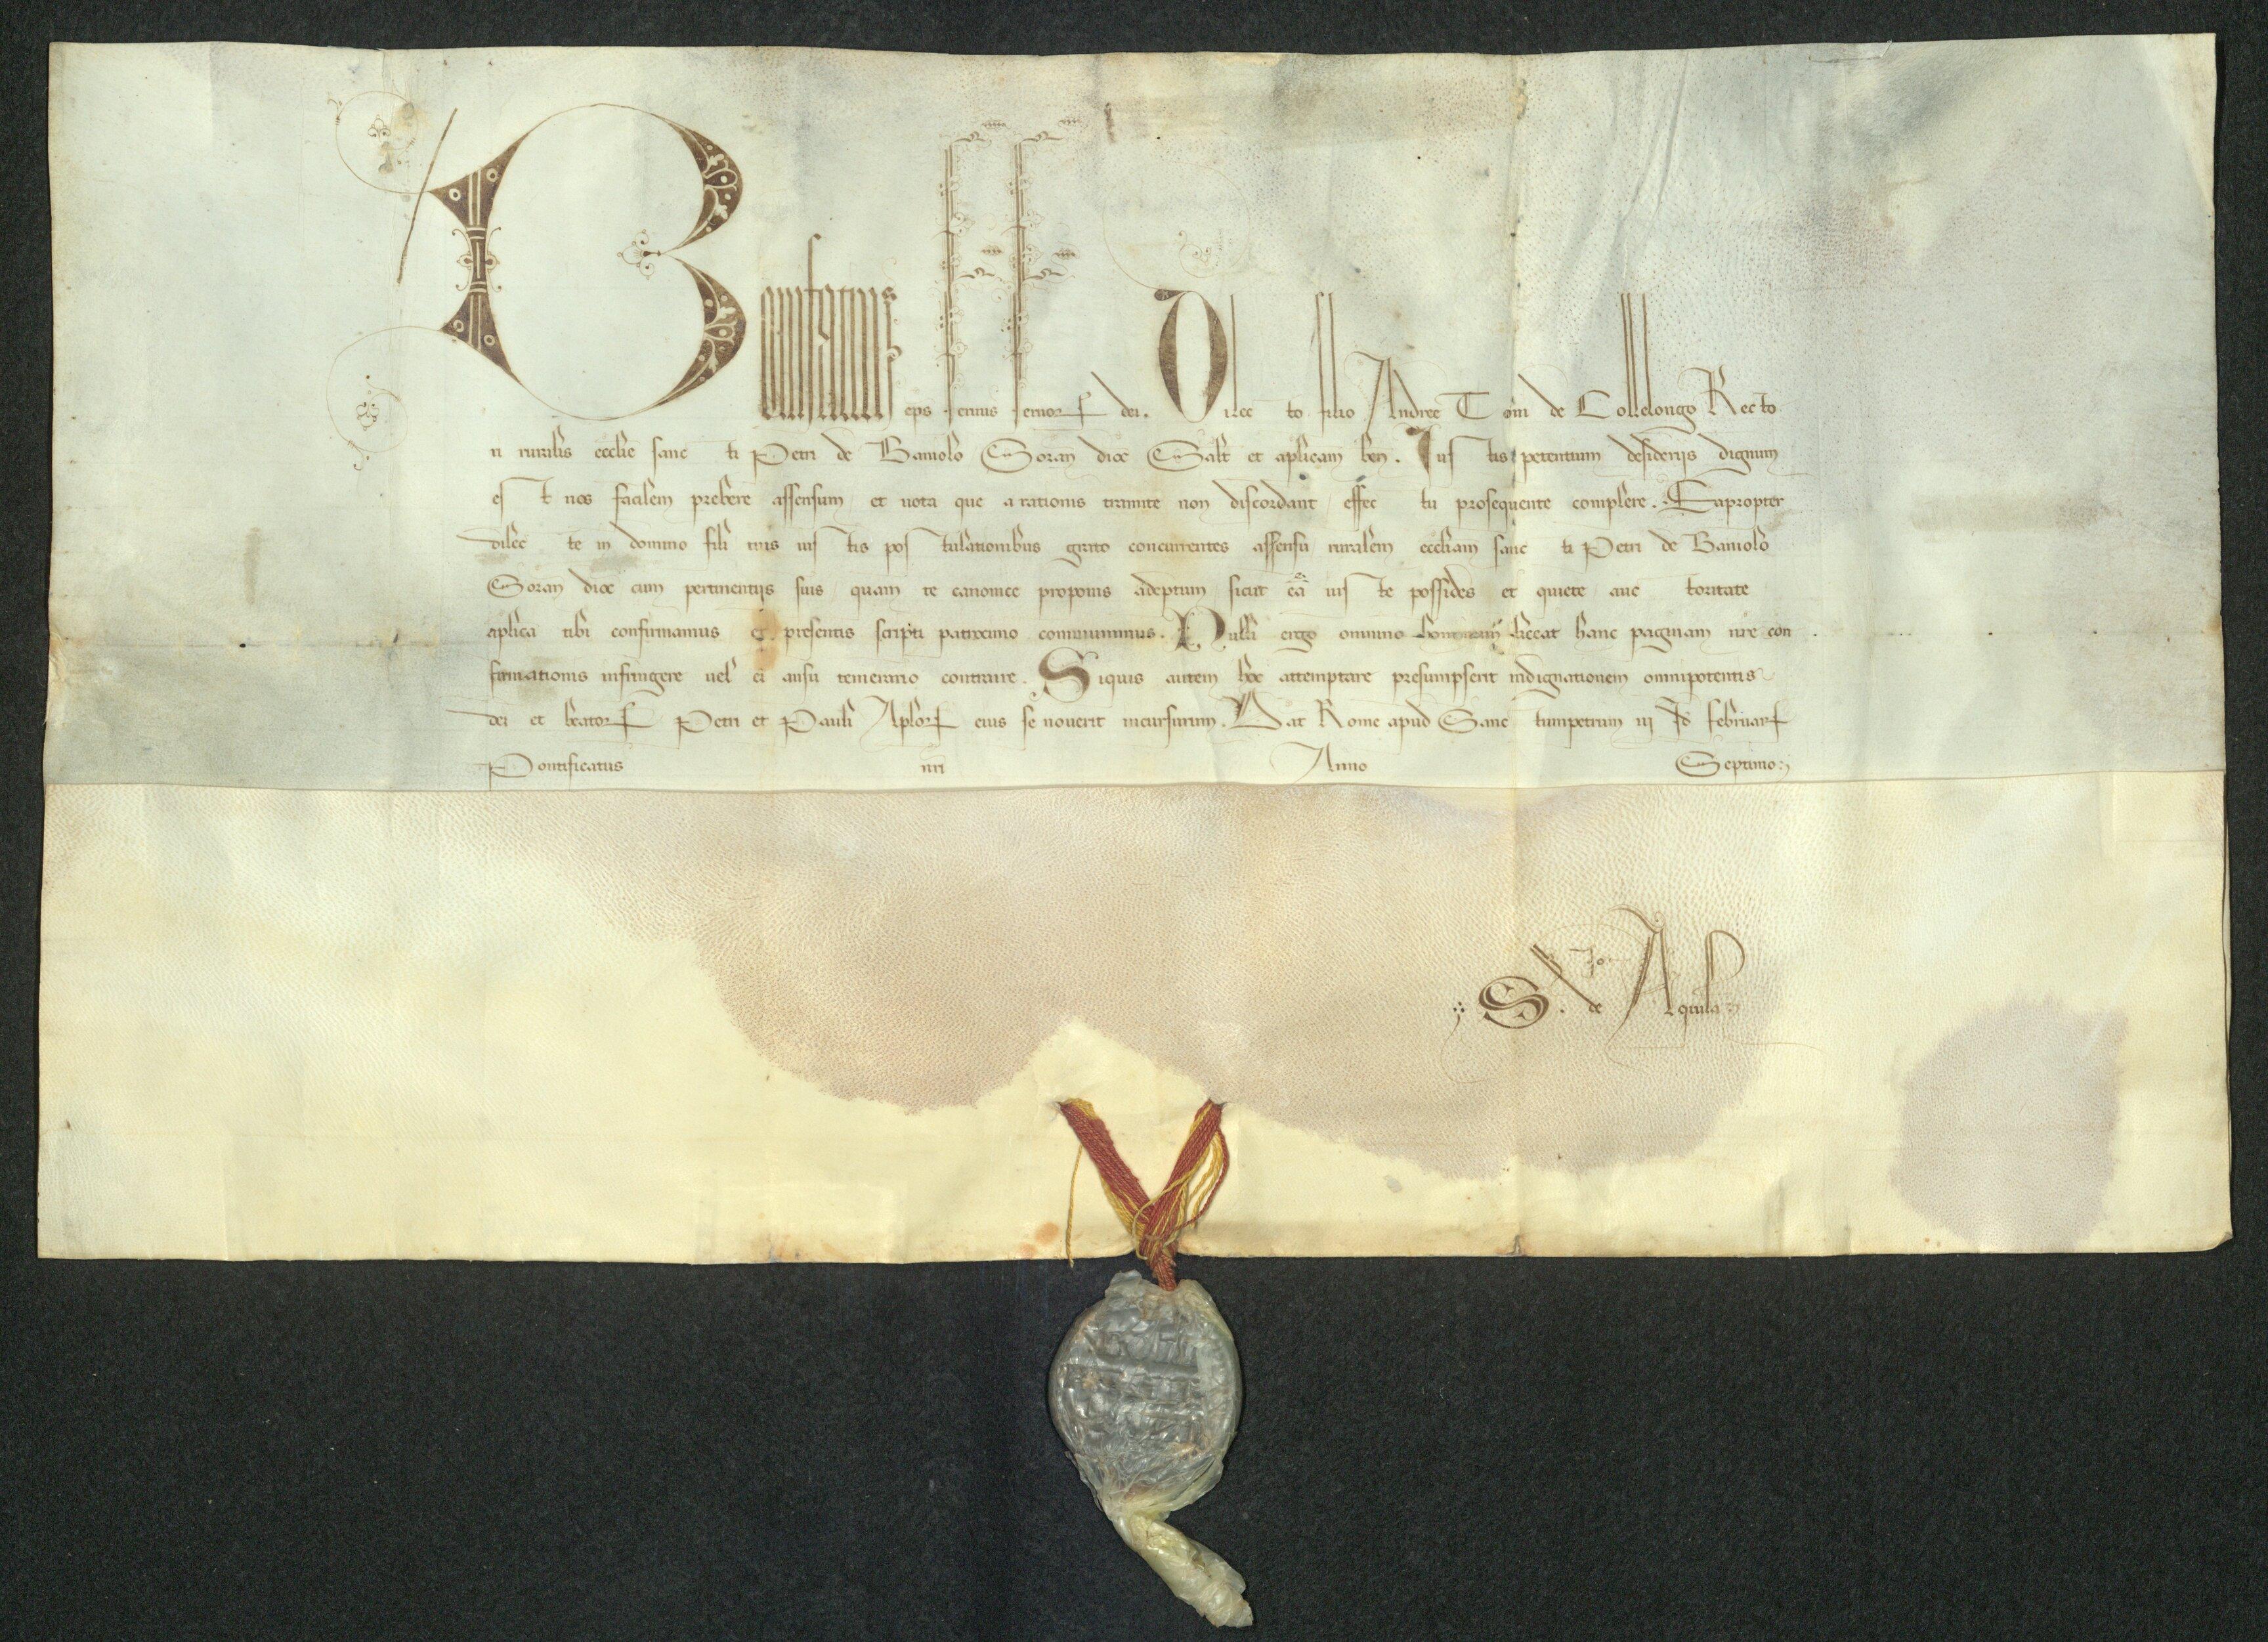 Bonifatius eps seruus seruor dei. Dilecto filio Andree Tom de Collelongo Recto
ri ruralis ecclie sancti Petri de Soran dioc Salt et aplicam ben. Iustis petentium desiderijs dignum
est nos facilem prebere assensum et uota que a rationis tramite non discordant effectu prosequente complere. Eapropter
dilecte in domino fili tuis iustis postulationibus grato concurrentes assensu ruralem eccliam sancti Petri de
Soran dioc cum pertinentijs suis quam te canonice proponis adeptum sicut eā iuste possides et quiete auctoritate
aplica tibi confirmamus et presentis scripti patrocinio communimus. Nulli ergo omnino hominum liceat hanc paginam nre con
firmationis infringere uel ei ausu temerario contraire. Siquis autem hoc attemptare presumpserit indignationem omnipotentis
dei et beator Petri et Pauli Aplor eius se nouerit incursurum. Dat Rome apud Sanctumpetrum iij Id februar
Pontificatus nri Anno Septimo
Jo
S. de Aquila